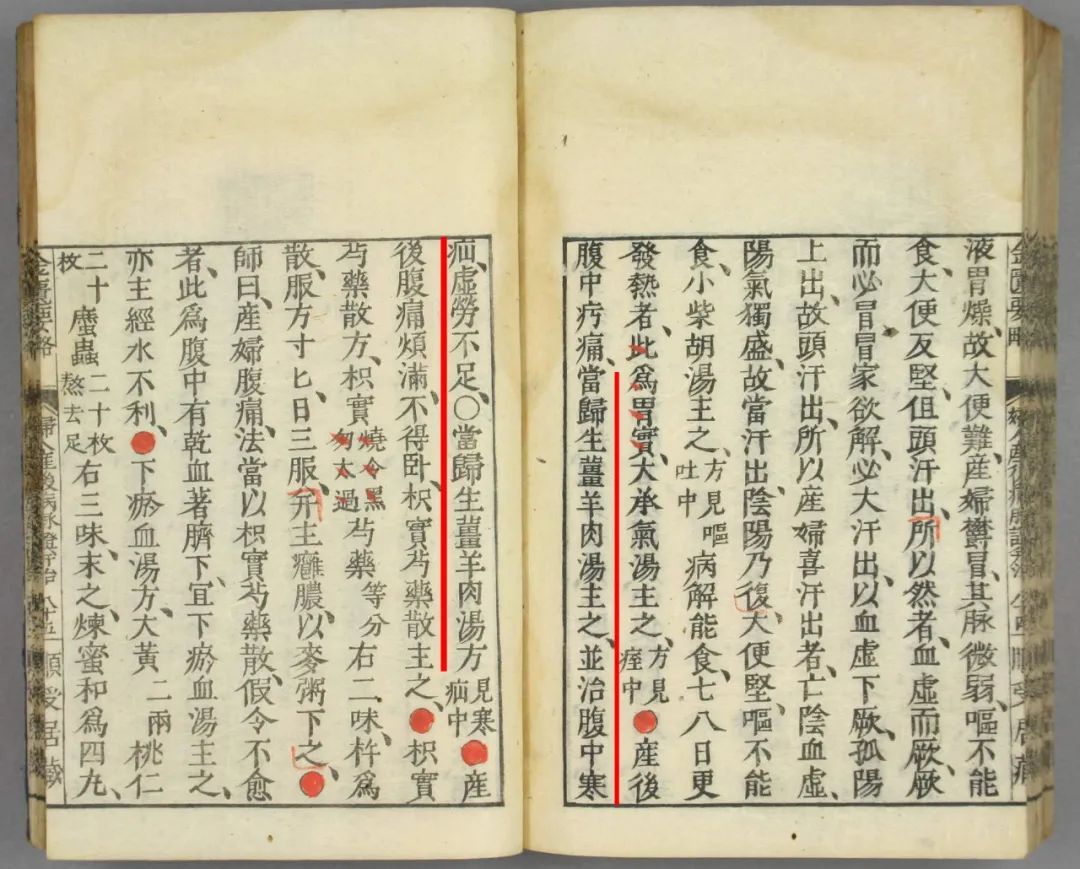 金匱要略
液胃燥、故大便難、産婦鬱冒、其脉微弱、嘔不能
食、大便反堅、但頭汗出、所以然者、血虛而厥、厥
而必冒、冒家欲解、必大汗出、以血虛下厥、孤陽
上出、故頭汗出、所以産婦喜汗出者、亡陰血虛、
陽氣獨盛、故當汗出、陰陽乃復、大便堅、嘔不能
食、小柴胡湯主之、方見嘔吐中病解能食、七八日更
發熱者、此爲胃實、大承氣湯主之、方見痓中●産後
腹中㽲痛、當歸生薑羊肉湯主之、並治腹中寒
疝、虛勞不足、○當歸生薑羊肉湯方見寒疝中●産
後腹痛煩滿、不得卧、枳實芍藥散主之、●枳實
芍藥散方、枳實燒令黑勿太過芍藥等分右二味、杵爲
散、服方寸匕、日三服、并主癰膿、以麥粥下之、●
師曰、産婦腹痛、法當以枳實芍藥散、假令不愈
者、此爲腹中有乾血著臍下、宜下瘀血湯主之、
亦主經水不利、●下瘀血湯方、大黃二兩桃仁
二十枚䗪蟲二十枚熬去足右三味、末之、煉蜜和爲四丸、
金匱要略 婦人産後病脉證并治 八十五 順受居藏